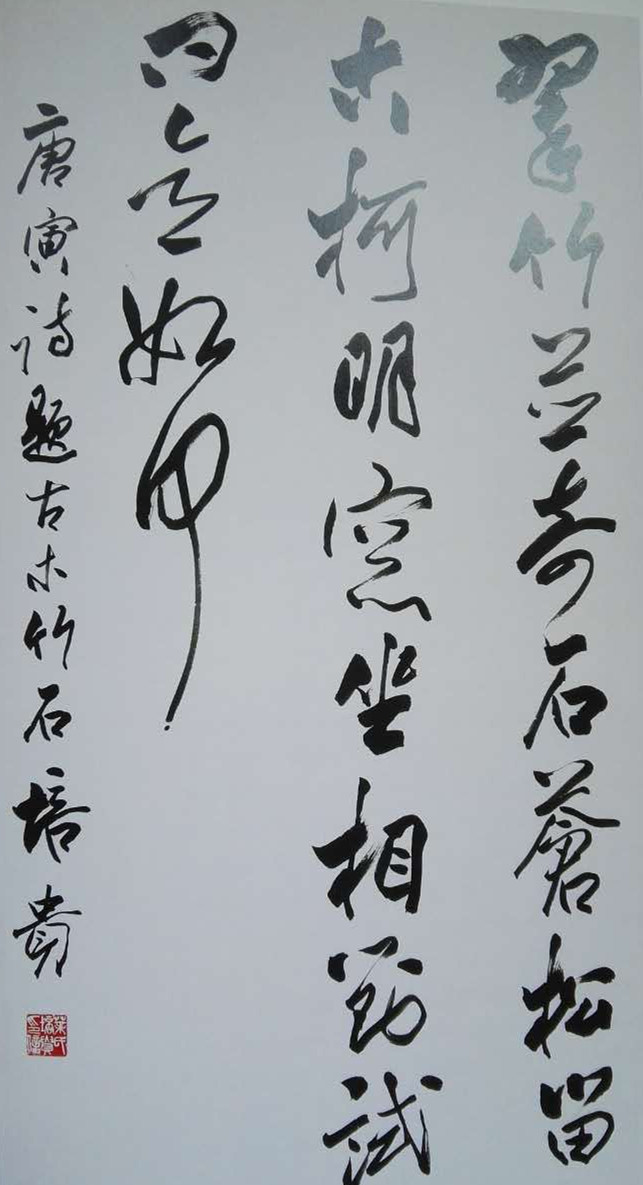 翠竹並奇石蒼松留
古柯明窗坐相對試
問意如何
唐寅詩題古木竹石培貴